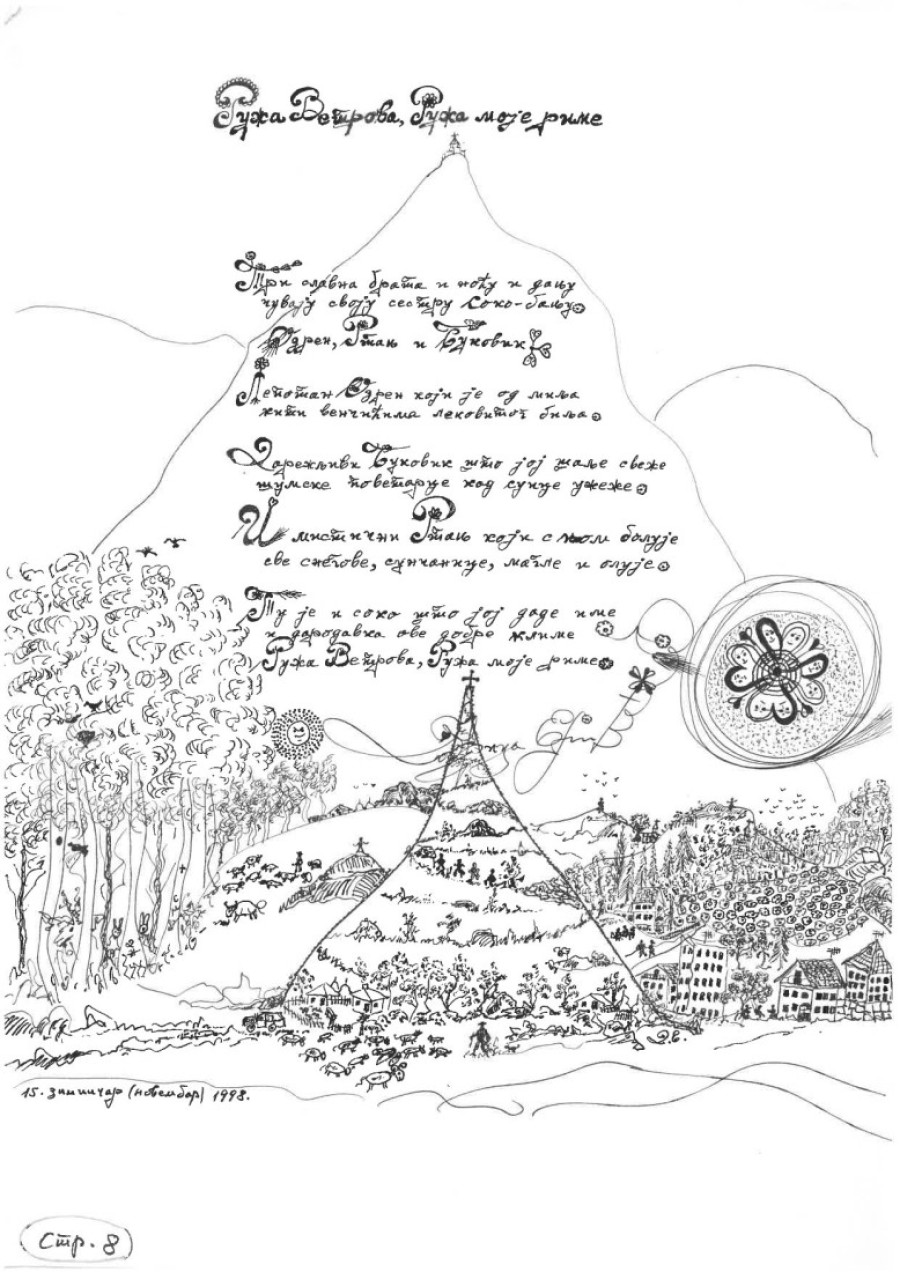 Ружа Ветрова, Ружа моје риме
Три славна брата и ноћу и дању
чувају своју сестру Соко-бању
Озрен, Ртањ и Буковик
Лепотан Озрен који је од миља
кити венчићима лековитог биља
Дарежљиви Буковик што јој шаље свеже
шумске поветарце кад сунце ужеже
И мистични Ртањ који с њом болује
све снегове, сунчанице, магле и олује
Ту је и соко што јој даде име
и дародавка ове добре климе
Ружа Ветрова, Ружа моје риме
Д.С.
15. зимичар (новембар) 1998.
Стр. 8